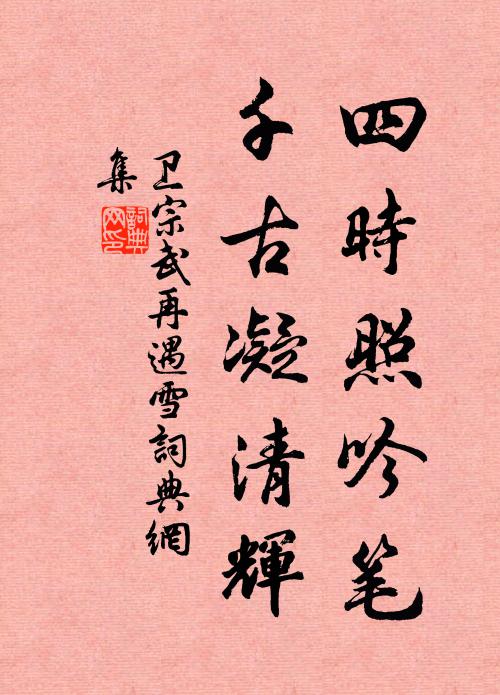 四時照吟笔
千古凝清輝
卫宗武再遇雪詞典網
集
詞典网印